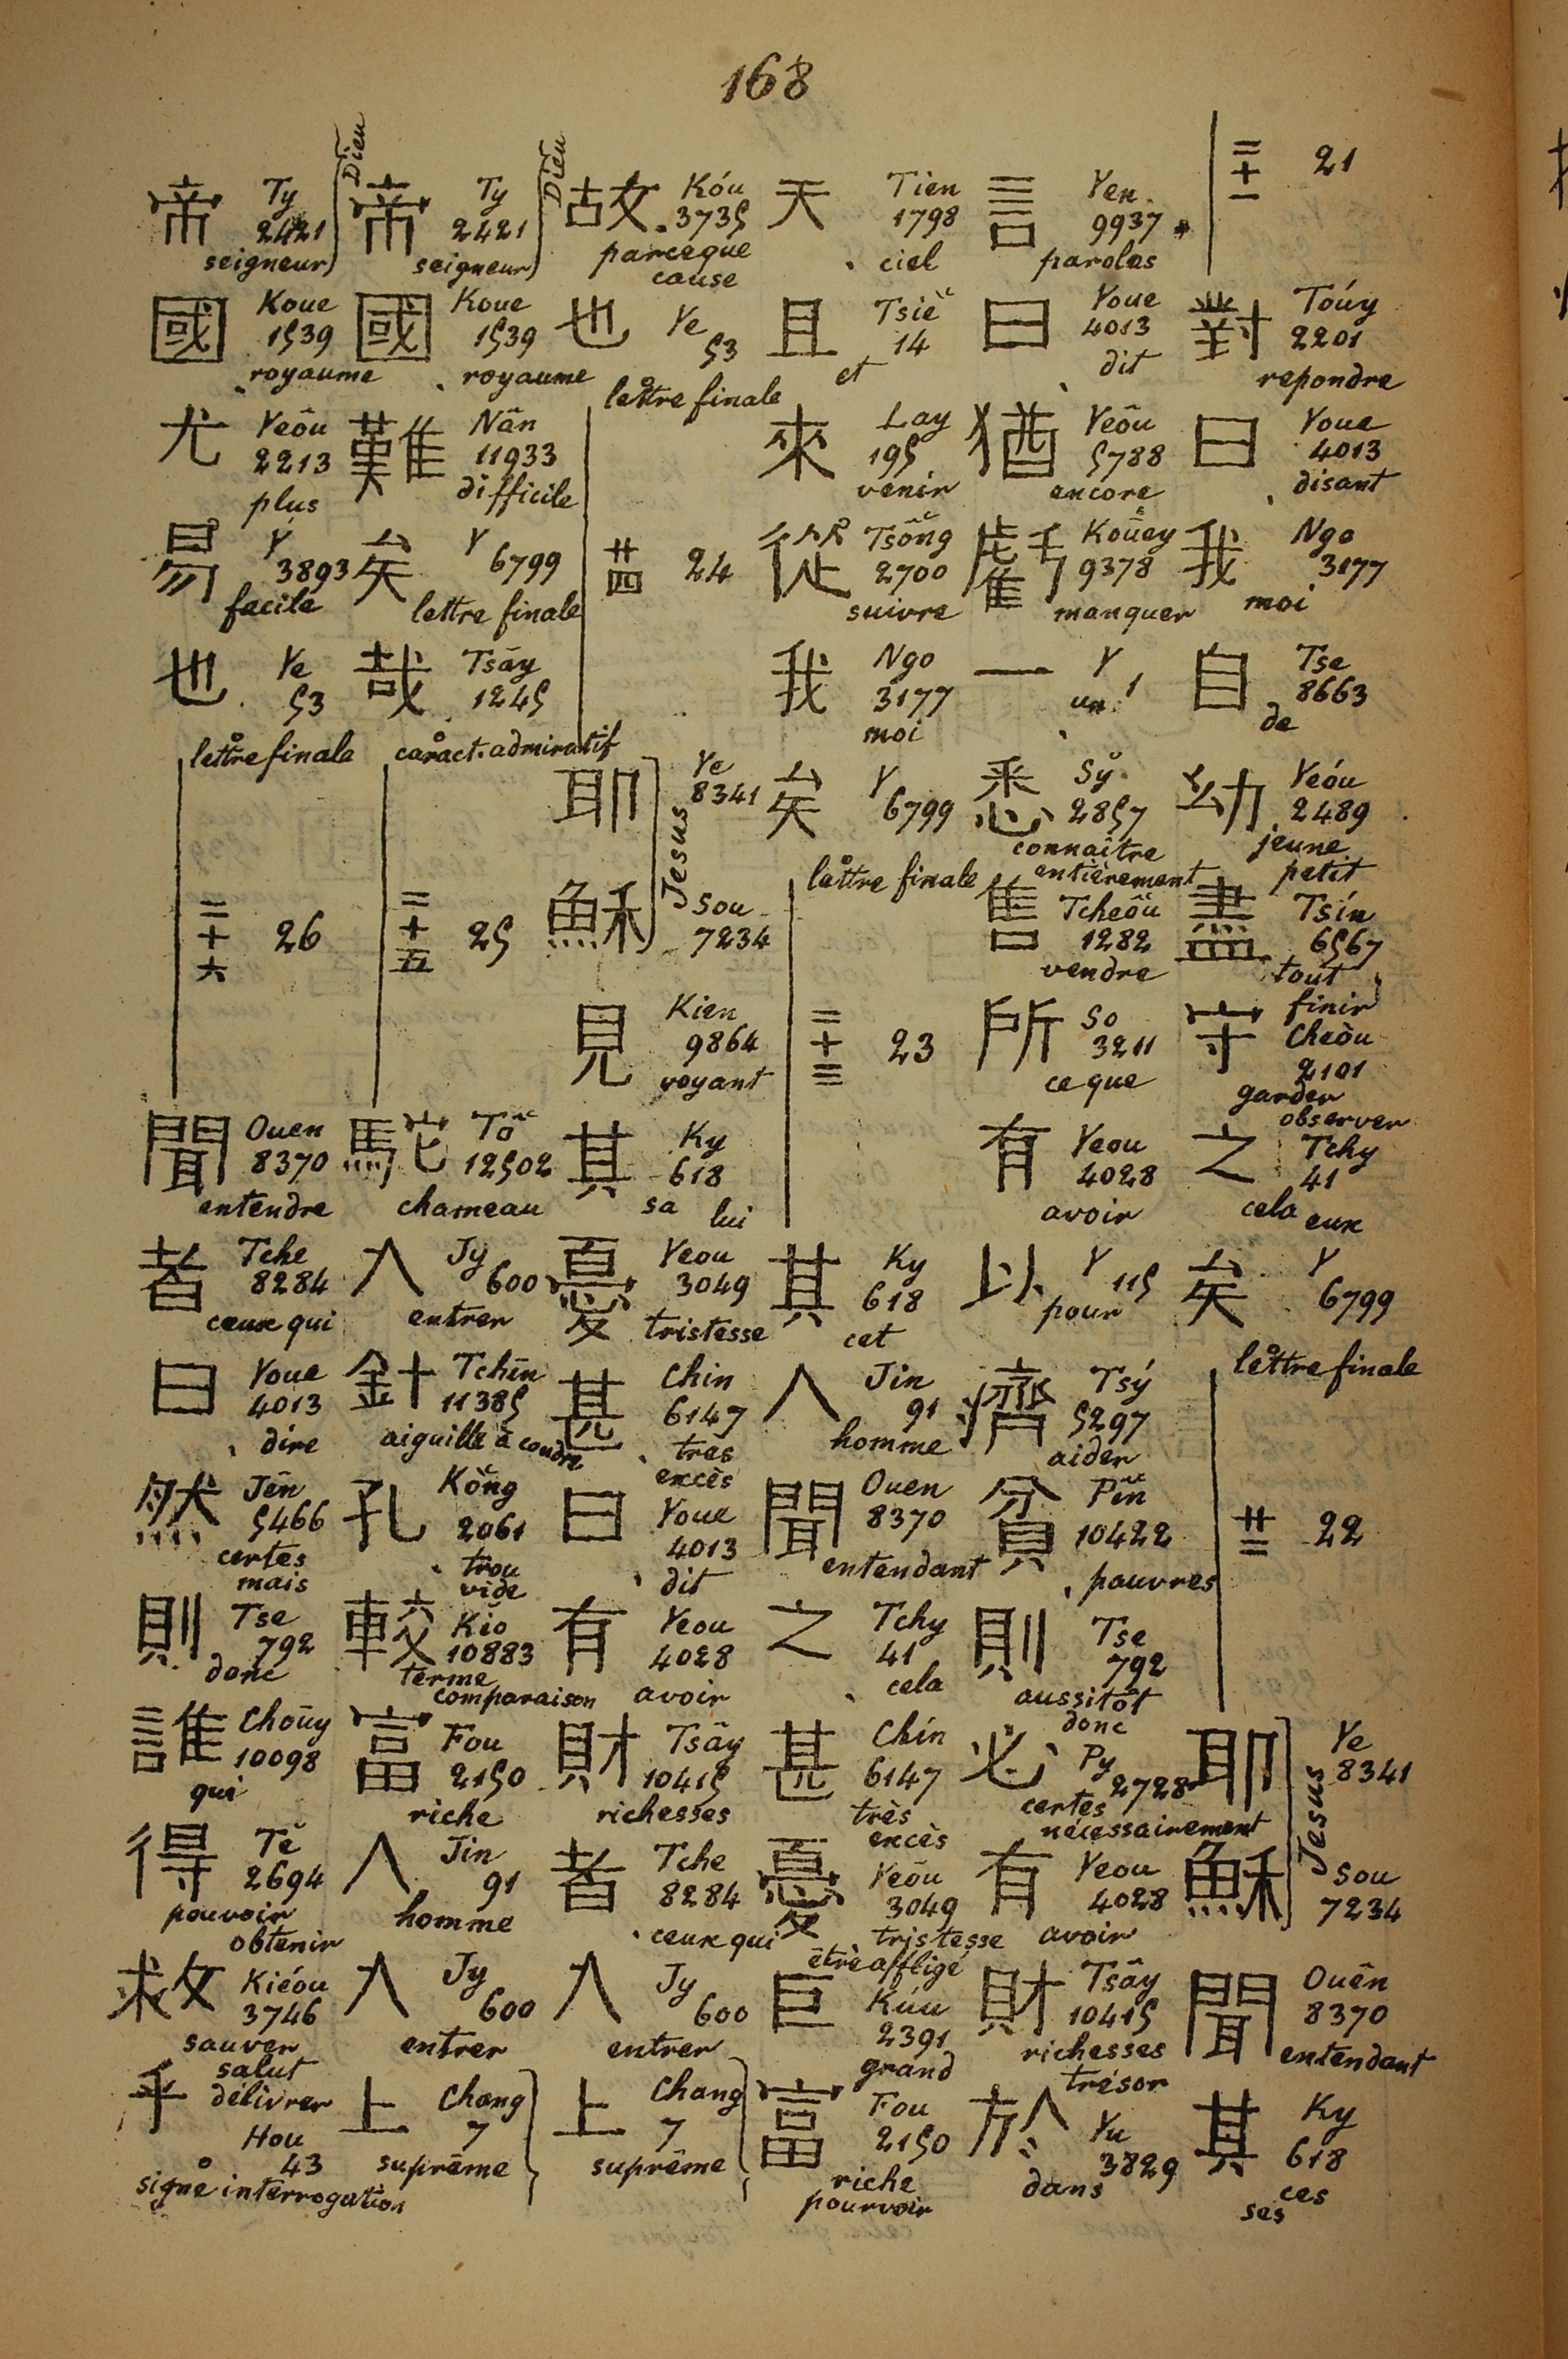 168
二十一 21
對 Toúy 2201 repondre
曰 Youe 4013 disant
我 Ngo 3177 moi
自 Tse 8663 de
幼 Yeóu 2489 jeune petit
盡 Tsín 6567 tout finir
守 Cheòu 2101 garder observer
之 Tchy 41 cela eux
矣 Y 6799 lettre finale
廿二 22
耶 Ye 8341
穌 Sou 7234
Jesus
聞 Ouên 8370 entendant
其 Ky 618 ces ses
言 Yen 9937 paroles
曰 Youe 4013 dit
猶 Yeôu 5788 encore
虧 Koūey 9378 manquer
一 Y 1 un
悉 Sy 2857 connaître entièrement
售 Tcheôu 1282 vendre
所 So 3211 ce que
有 Yeou 4028 avoir
以 Y 115 pour
濟 Tsý 5297 aider
貧 Pîn 10422 pauvres
則 Tse 792 aussitôt donc
必 Py 2728 certes nécessairement
有 Yeou 4028 avoir
財 Tsây 10415 richesses trésor
於 Yu 3829 dans
天 Tien 1798 ciel
且 Tsiè 14 et
來 Lay 195 venir
從 Tsông 2700 suivre
我 Ngo 3177 moi
矣 Y 6799 lettre finale
二十三 23
其 Ky 618 cet
人 Jin 91 homme
聞 Ouen 8370 entendant
之 Tchy 41 cela
甚 Chín 6147 très excès
憂 Yeōu 3049 tristesse être affligé
巨 Kúu 2391 grand
富 Fou 2150 riche pourvoir
故 Kóu 3735 parceque cause
也 Ye 53 lettre finale
廿四 24
耶 Ye 8341
穌 Sou 7234
Jesus
見 Kien 9864 voyant
其 Ky 618 sa lui
憂 Yeou 3049 tristesse
甚 Chin 6147 très excès
曰 Youe 4013 dit
有 Yeou 4028 avoir
財 Tsây 10415 richesses
者 Tche 8284 ceux qui
入 Jy 600 entrer
上 Chang 7 suprême
Dieu
帝 Ty 2421 seigneur
國 Koue 1539 royaume
難 Nân 11933 difficile
矣 Y 6799 lettre finale
哉 Tsāy 1245 caract. admiratif
二十五 25
駝 Tô 12502 chameau
入 Jy 600 entrer
針 Tchīn 11385 aiguille à coudre
孔 Kǒng 2061 trou vide
較 Kio 10883 terme comparaison
富 Fou 2150 riche
人 Jin 91 homme
入 Jy 600 entrer
上 Chang 7 suprême
Dieu
帝 Ty 2421 seigneur
國 Koue 1539 royaume
尤 Yeôu 2213 plus
易 Y 3893 facile
也 Ye 53 lettre finale
二十六 26
聞 Ouen 8370 entendre
者 Tche 8284 ceux qui
曰 Youe 4013 dire
然 Jên 5466 certes mais
則 Tse 792 donc
誰 Choūy 10098 qui
得 Tě 2694 pouvoir obtenir
救 Kiéou 3746 sauver salut délivrer
乎 Hou 43 signe interrogation